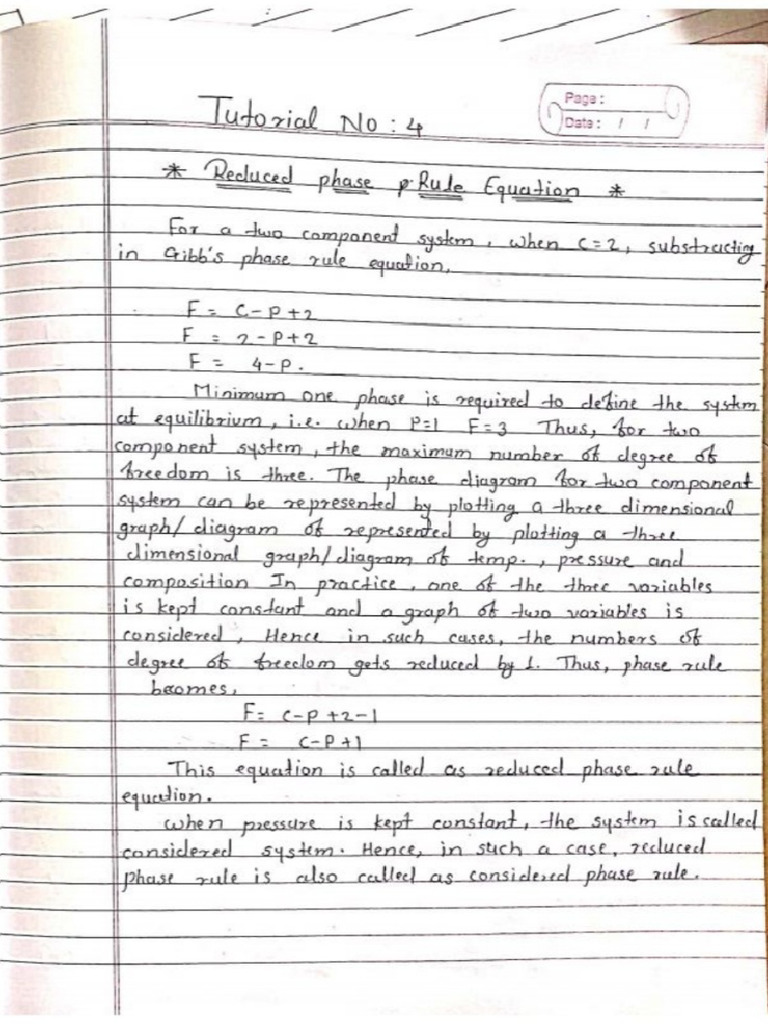 Tutorial No : 4
Page :
Date : / /
* Reduced phase p-Rule Equation *
For a two component system, when C=2, substracting
in Gibb's phase rule equation,
F = C-P+2
F = 2-P+2
F = 4-P.
Minimum one phase is required to define the system
at equilibrium, i.e. when P=1 F=3 Thus, for two
component system, the maximum number of degree of
freedom is three. The phase diagram for two component
system can be represented by plotting a three dimensional
graph/ diagram of represented by plotting a three
dimensional graph/diagram of temp., pressure and
composition In practice, one of the three variables
is kept constant and a graph of two variables is
considered, Hence in such cases, the numbers of
degree of freedom gets reduced by 1. Thus, phase rule
becomes,
F= C-P+2-1
F = C-P+1
This equation is called as reduced phase rule
equation.
When pressure is kept constant, the system is called
considered system. Hence, in such a case, reduced
phase rule is also called as considered phase rule.